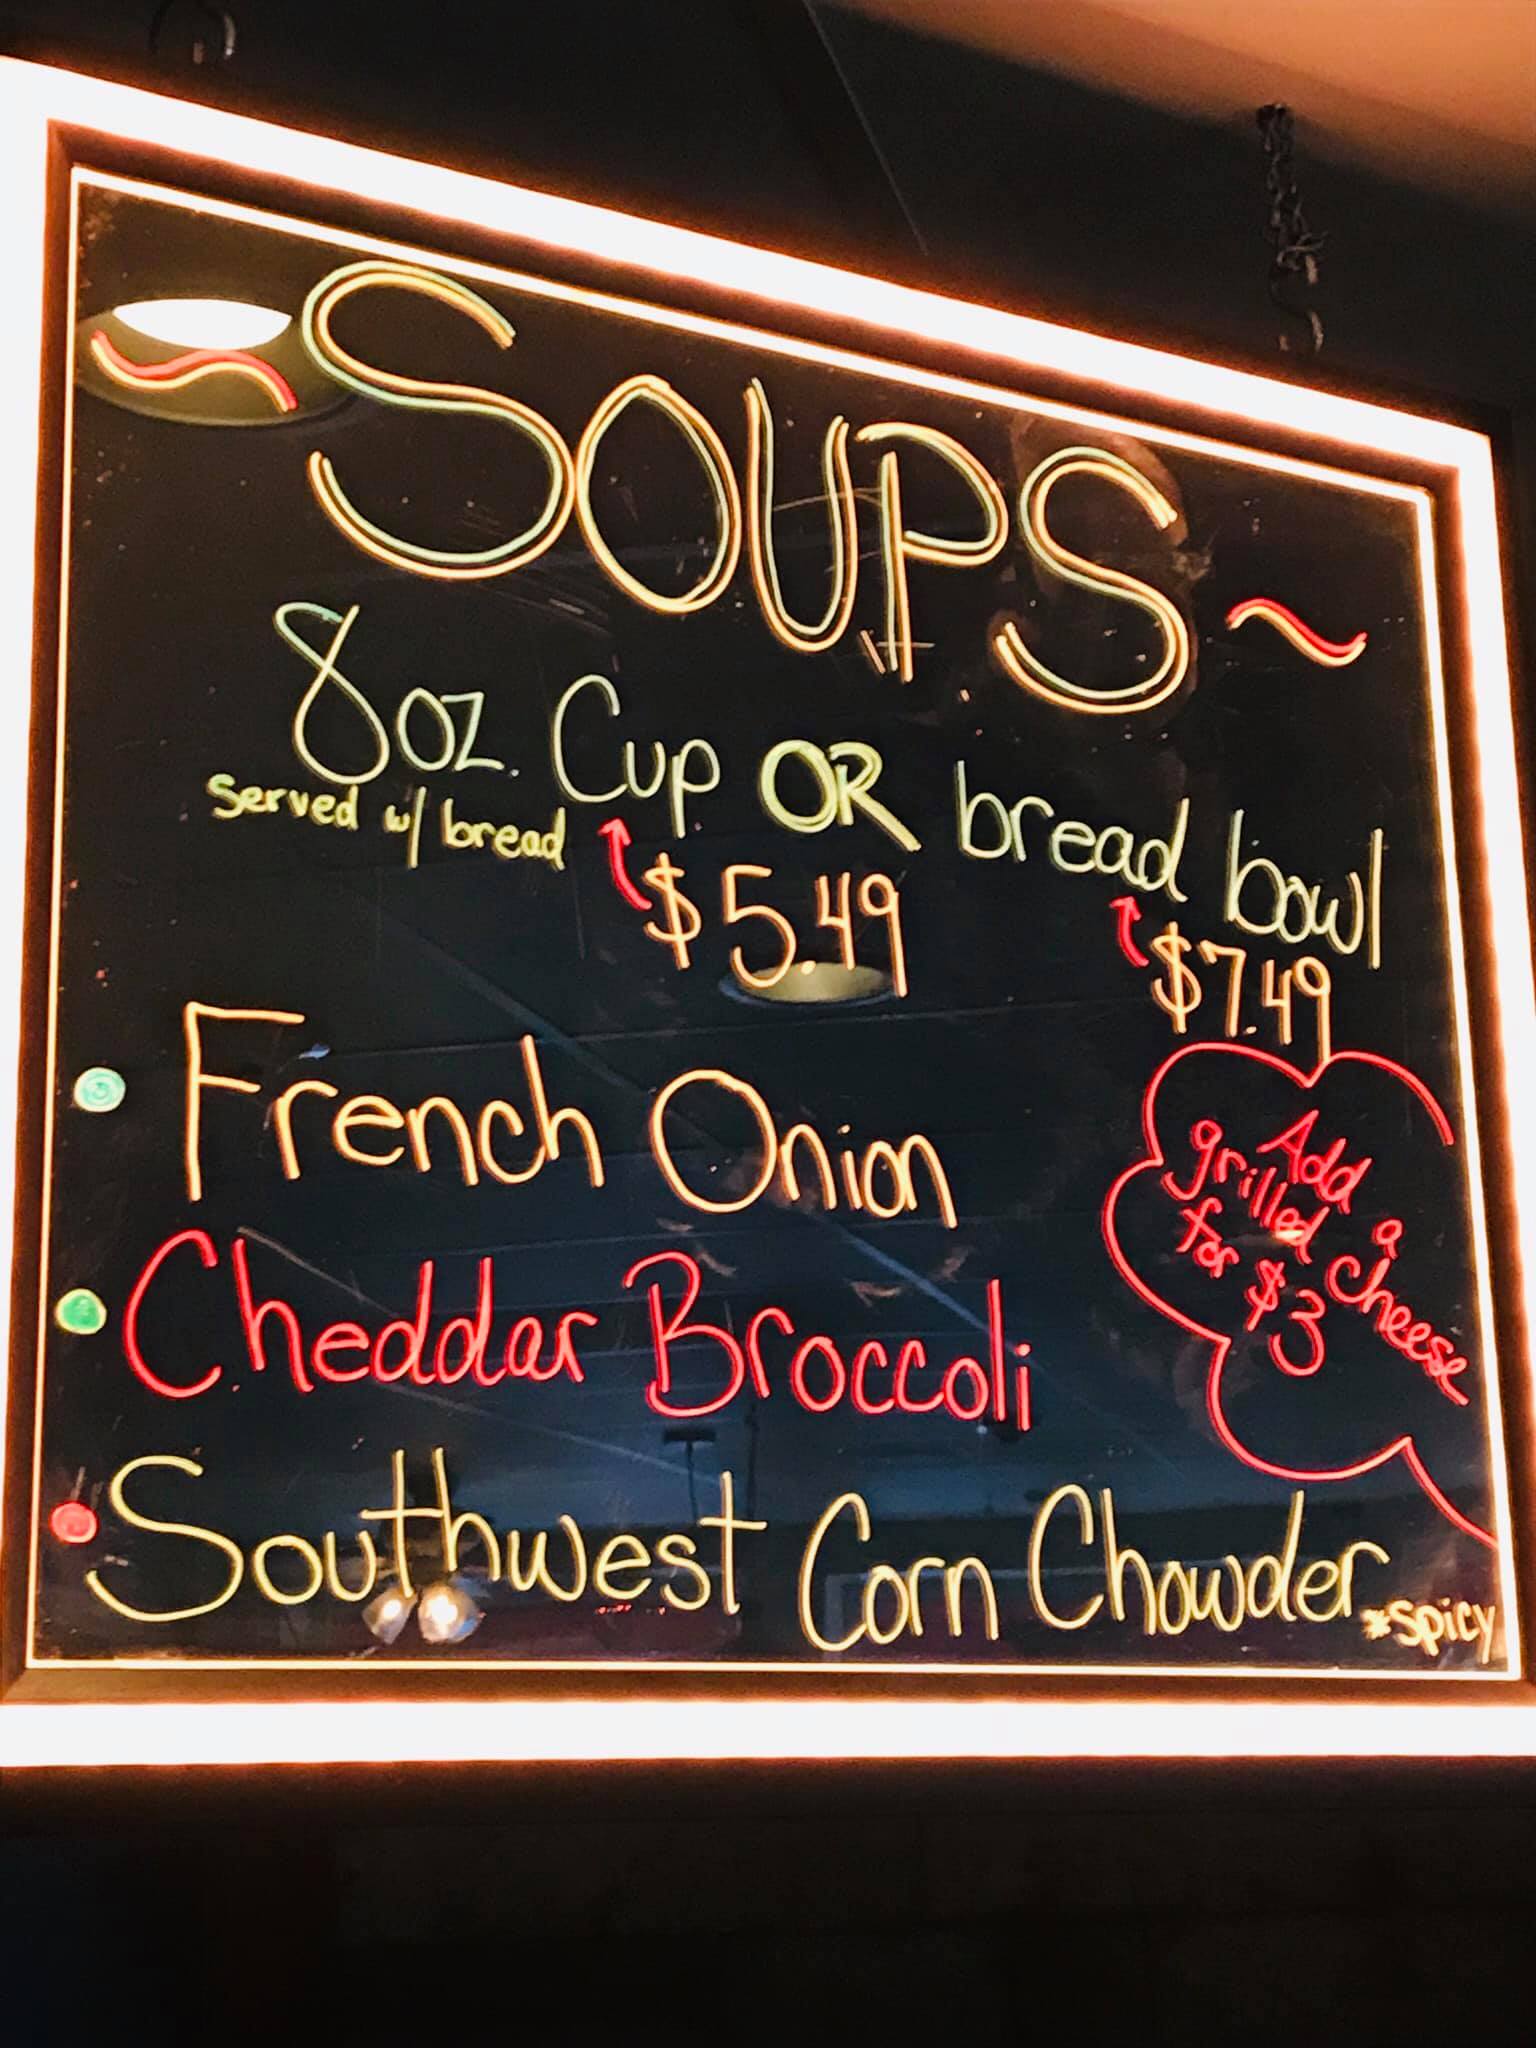 ~SOUPS~
8oz. Cup OR bread bowl
served w/ bread
$5.49
$7.49
French Onion
Cheddar Broccoli
Southwest Corn Chowder
*spicy
Add a
grilled cheese
for $3